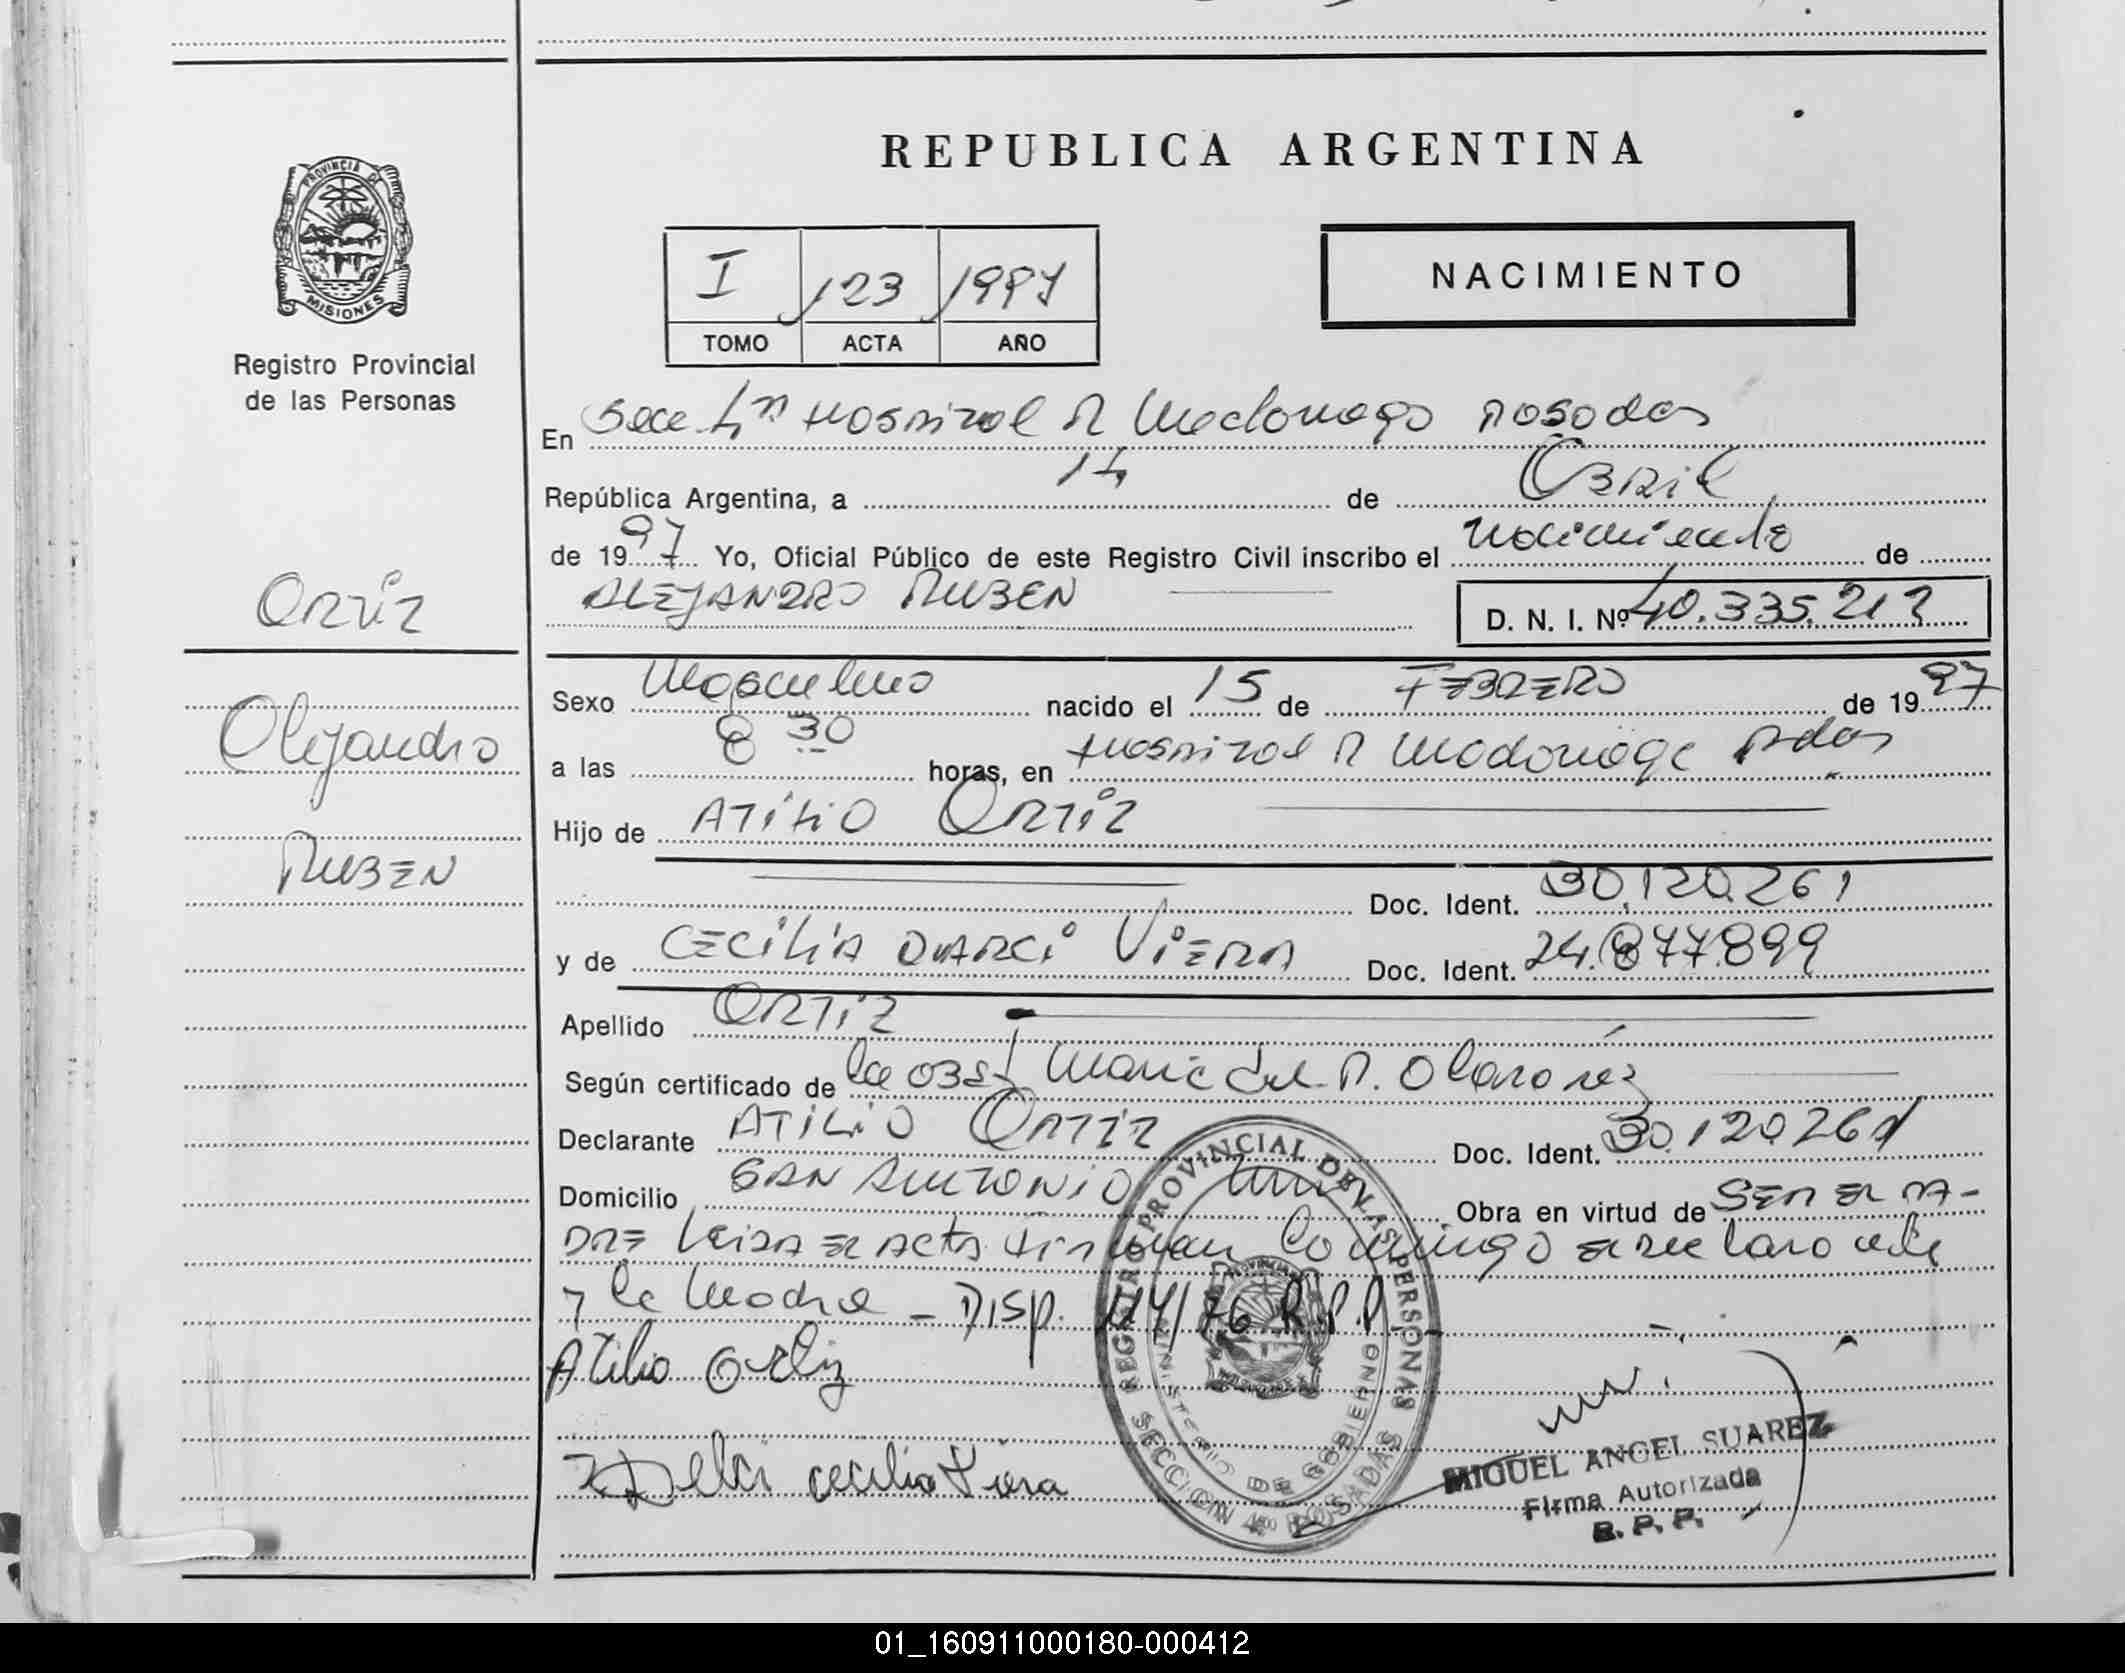 REPUBLICA ARGENTINA
PROVINCIA DE
MISIONES
Registro Provincial
de las Personas
NACIMIENTO
I 123 1997
TOMO ACTA AÑO
En Secc 4ta Hospital R Madariaga Posadas
República Argentina, a 14 de Abril
de 1997 Yo, Oficial Público de este Registro Civil inscribo el nacimiento de
ALEJANDRO RUBEN
D. N. I. Nº 40.335.212
Ortiz
Alejandro
RUBEN
Sexo Masculino nacido el 15 de FEBRERO de 1997
a las 8 30 horas, en Hospital R Madariaga Pdas
Hijo de ATILIO ORTIZ
Doc. Ident. 30.120.261
y de CECILIA DARCI VIERA Doc. Ident. 24.877.899
Apellido ORTIZ
Según certificado de la obst Maria del R.
Declarante ATILIO ORTIZ Doc. Ident. 30.120.261
Domicilio SAN ANTONIO Obra en virtud de SER EL PA-
DRE Leida el acta firman conmigo el declarante
y la Madre - Disp. 114/76 R.P.P.
Atilio Ortiz
Delci cecilia Viera
REGISTRO PROVINCIAL DE LAS PERSONAS
MINISTERIO DE GOBIERNO
SECCION 4ta POSADAS
MIGUEL ANGEL SUAREZ
Firma Autorizada
R. P. P.
01_160911000180-000412